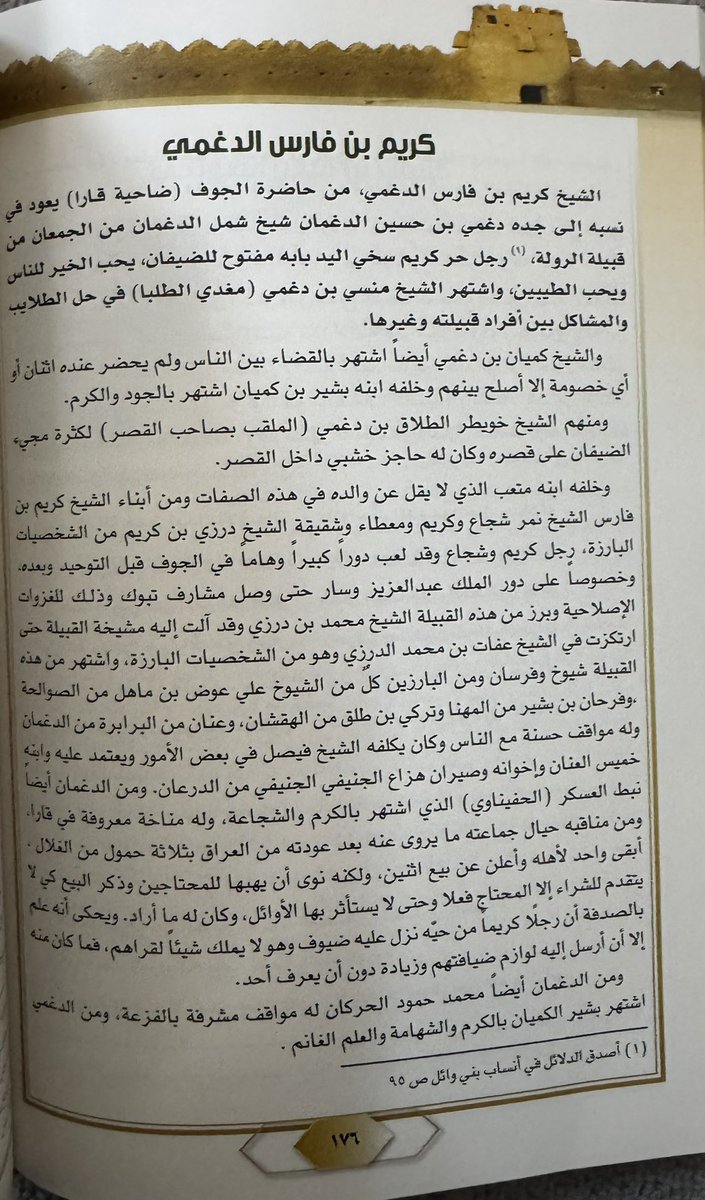 كريم بن فارس الدغمي
الشيخ كريم بن فارس الدغمي، من حاضرة الجوف (ضاحية قارا) يعود في
نسبه إلى جده دغمي بن حسين الدغمان شيخ شمل الدغمان من الجمعان من
قبيلة الرولة، (١) رجل حر كريم سخي اليد بابه مفتوح للضيفان، يحب الخير للناس
ويحب الطيبين، واشتهر الشيخ منسي بن دغمي (مغدي الطلبا) في حل الطلايب
والمشاكل بين أفراد قبيلته وغيرها.
والشيخ كميان بن دغمي أيضاً اشتهر بالقضاء بين الناس ولم يحضر عنده اثنان أو
أي خصومة إلا أصلح بينهم وخلفه ابنه بشير بن كميان اشتهر بالجود والكرم.
ومنهم الشيخ خويطر الطلاق بن دغمي (الملقب بصاحب القصر) لكثرة مجيء
الضيفان على قصره وكان له حاجز خشبي داخل القصر.
وخلفه ابنه متعب الذي لا يقل عن والده في هذه الصفات ومن أبناء الشيخ كريم بن
فارس الشيخ نمر شجاع وكريم ومعطاء وشقيقة الشيخ درزي بن كريم من الشخصيات
البارزة، رجل كريم وشجاع وقد لعب دوراً كبيراً وهاماً في الجوف قبل التوحيد وبعده.
وخصوصاً على دور الملك عبدالعزيز وسار حتى وصل مشارف تبوك وذلك للغزوات
الإصلاحية وبرز من هذه القبيلة الشيخ محمد بن درزي وقد آلت إليه مشيخة القبيلة حتى
ارتكزت في الشيخ عفات بن محمد الدرزي وهو من الشخصيات البارزة، واشتهر من هذه
القبيلة شيوخ وفرسان ومن البارزين كلٌ من الشيوخ علي عوض بن ماهل من الصوالحة
،وفرحان بن بشير من المهنا وتركي بن طلق من الهقشان، وعنان من البرابرة من الدغمان
وله مواقف حسنة مع الناس وكان يكلفه الشيخ فيصل في بعض الأمور ويعتمد عليه وابنه
خميس العنان وإخوانه وصيران هزاع الجنيفي الجنيفي من الدرعان. ومن الدغمان أيضاً
نبط العسكر (الحفيناوي) الذي اشتهر بالكرم والشجاعة، وله مناخة معروفة في قارا،
ومن مناقبه حيال جماعته ما يروى عنه بعد عودته من العراق بثلاثة حمول من الغلال ،
أبقى واحد لأهله وأعلن عن بيع اثنين، ولكنه نوى أن يهبها للمحتاجين وذكر البيع كي لا
يتقدم للشراء إلا المحتاج فعلا وحتى لا يستأثر بها الأوائل، وكان له ما أراد. ويحكى أنه علم
بالصدفة أن رجلًا كريماً من حيّه نزل عليه ضيوف وهو لا يملك شيئاً لقراهم، فما كان منه
إلا أن أرسل إليه لوازم ضيافتهم وزيادة دون أن يعرف أحد.
ومن الدغمان أيضاً محمد حمود الحركان له مواقف مشرفة بالفزعة، ومن الدغمي
اشتهر بشير الكميان بالكرم والشهامة والعلم الغانم .
(١) أصدق الدلائل في أنساب بني وائل ص ٩٥
١٧٦